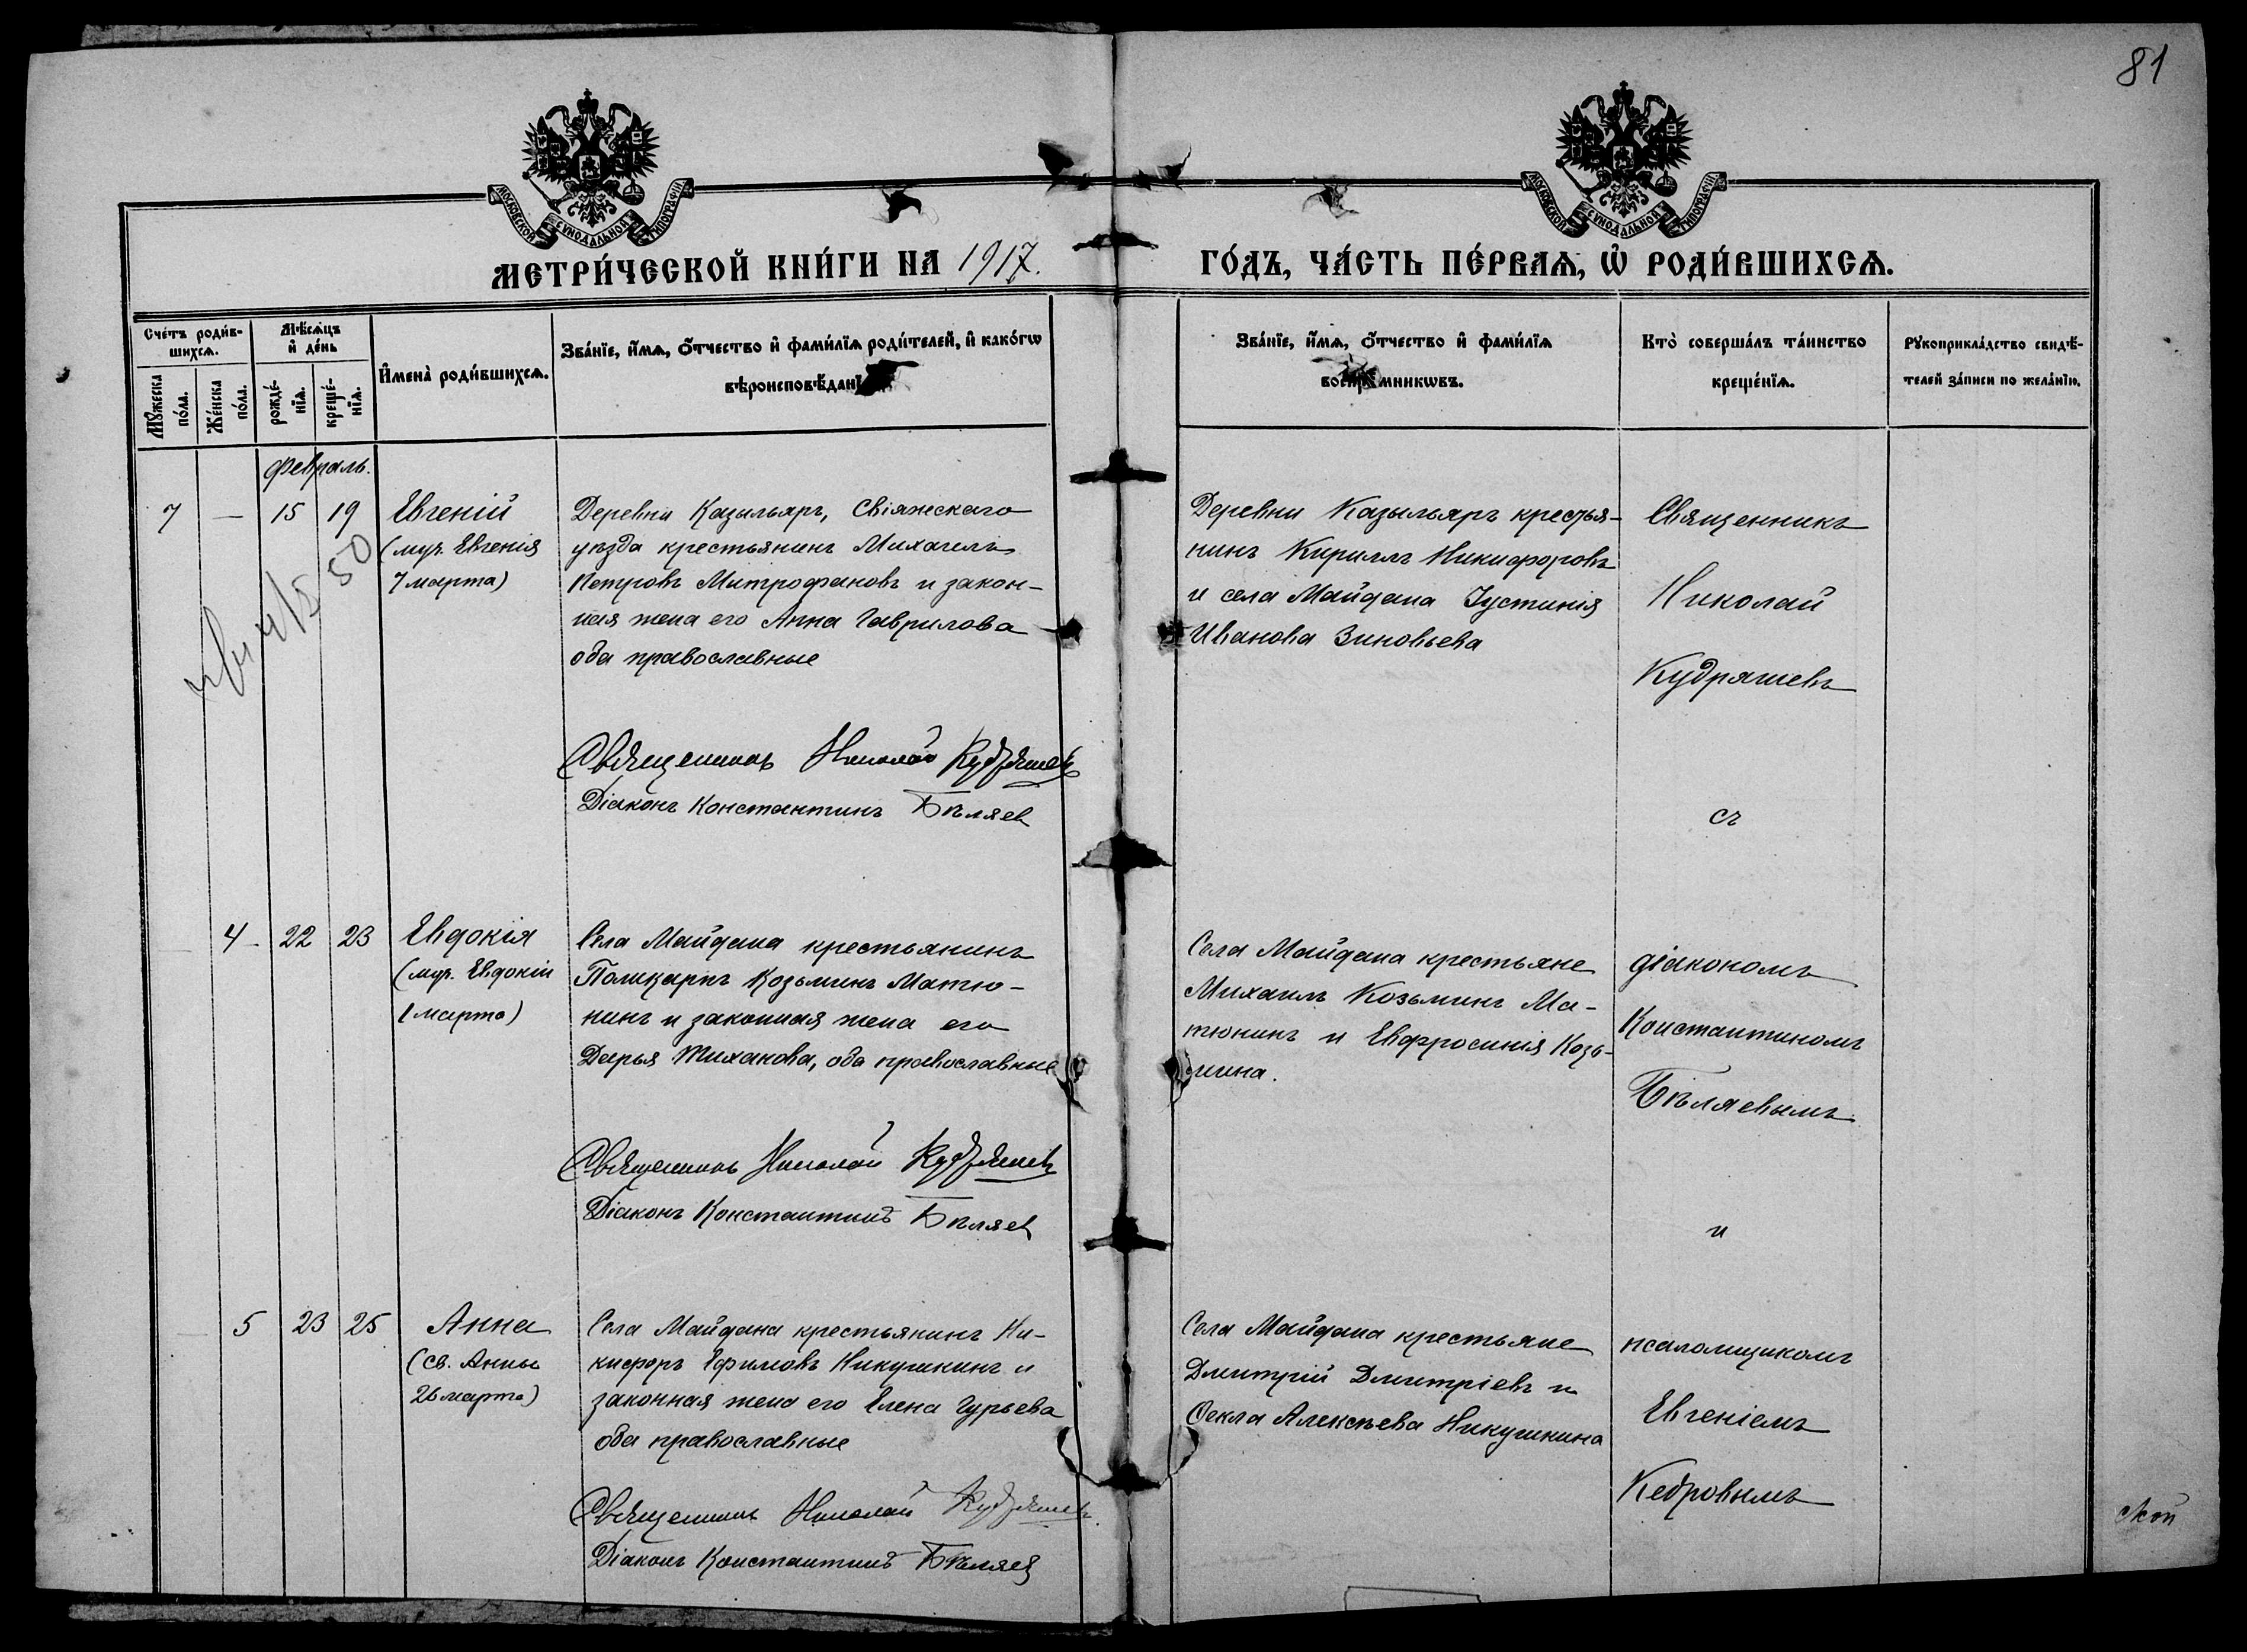 81
МОСКОВСКОЙ СѴНОДАЛЬНОЙ ТИПОГРАФІИ
МОСКОВСКОЙ СѴНОДАЛЬНОЙ ТИПОГРАФІИ
МЕТРИ́ЧЕСКОЙ КНИ́ГИ НА 1917.
ГО́ДЪ, ЧА́СТЬ ПЕ́РВАѦ, Ѡ҆ РОДИ́ВШИХСѦ.
Сче́тъ роди́в-
шихсѧ.
Мꙋ́жеска по́ла.
Же́нска по́ла.
Мѣ́сѧцъ
и҆ де́нь
рожде́-
нїѧ.
креще́-
нїѧ.
И҆мена̀ роди́вшихсѧ.
Зва́нїе, и҆́мѧ, ѻ҆́тчество и҆ фами́лїѧ роди́телей, и҆ како́гѡ
вѣроисповѣ́данї
Зва́нїе, и҆́мѧ, ѻ҆́тчество и҆ фами́лїѧ
воспрїе́мникѡвъ.
Кто̀ соверша́лъ та́инство
креще́нїѧ.
Рꙋкоприкла́дство свидѣ́-
телей за́писи по жела́нїю.
Февраль.
7 — 15 19
Евгеній
(муч. Евгенія
7 марта)
50
Деревни Казыльяръ, Свіяжскаго
уѣзда крестьянинъ Михаилъ
Петровъ Митрофановъ и закон-
ная жена его Анна Гаврилова
оба православные
Священникъ Николай Кудряшевъ
Діаконъ Константинъ Бѣляев
Деревни Казыльяръ крестья-
нинъ Кириллъ Никифоровъ
и села Майдана Іустинія
Иванова Зиновьева
Священникъ
Николай
Кудряшевъ
съ
4 22 23
Евдокія
(муч. Евдокіи
1 марта)
Села Майдана крестьянинъ
Поликарпъ Козьминъ Матю-
нинъ и законная жена его
Дарья Тиханова, оба православные
Священникъ Николай Кудряшевъ
Діаконъ Константинъ Бѣляев
Села Майдана крестьяне
Михаилъ Козьминъ Ма-
тюнинъ и Евфросинія Козь-
мина.
діакономъ
Константиномъ
Бѣляевымъ
и
5 23 25
Анна
(св. Анны
26 марта)
Села Майдана крестьянинъ Ни-
кифоръ Ефимовъ Никушкинъ и
законная жена его Елена Гурьева
оба православные
Священникъ Николай Кудряшевъ
Діаконъ Константинъ Бѣляев
Села Майдана крестьяне
Дмитрій Дмитріевъ и
Ѳекла Алексѣева Никушкина
псаломщикомъ
Евгеніемъ
Кедровымъ